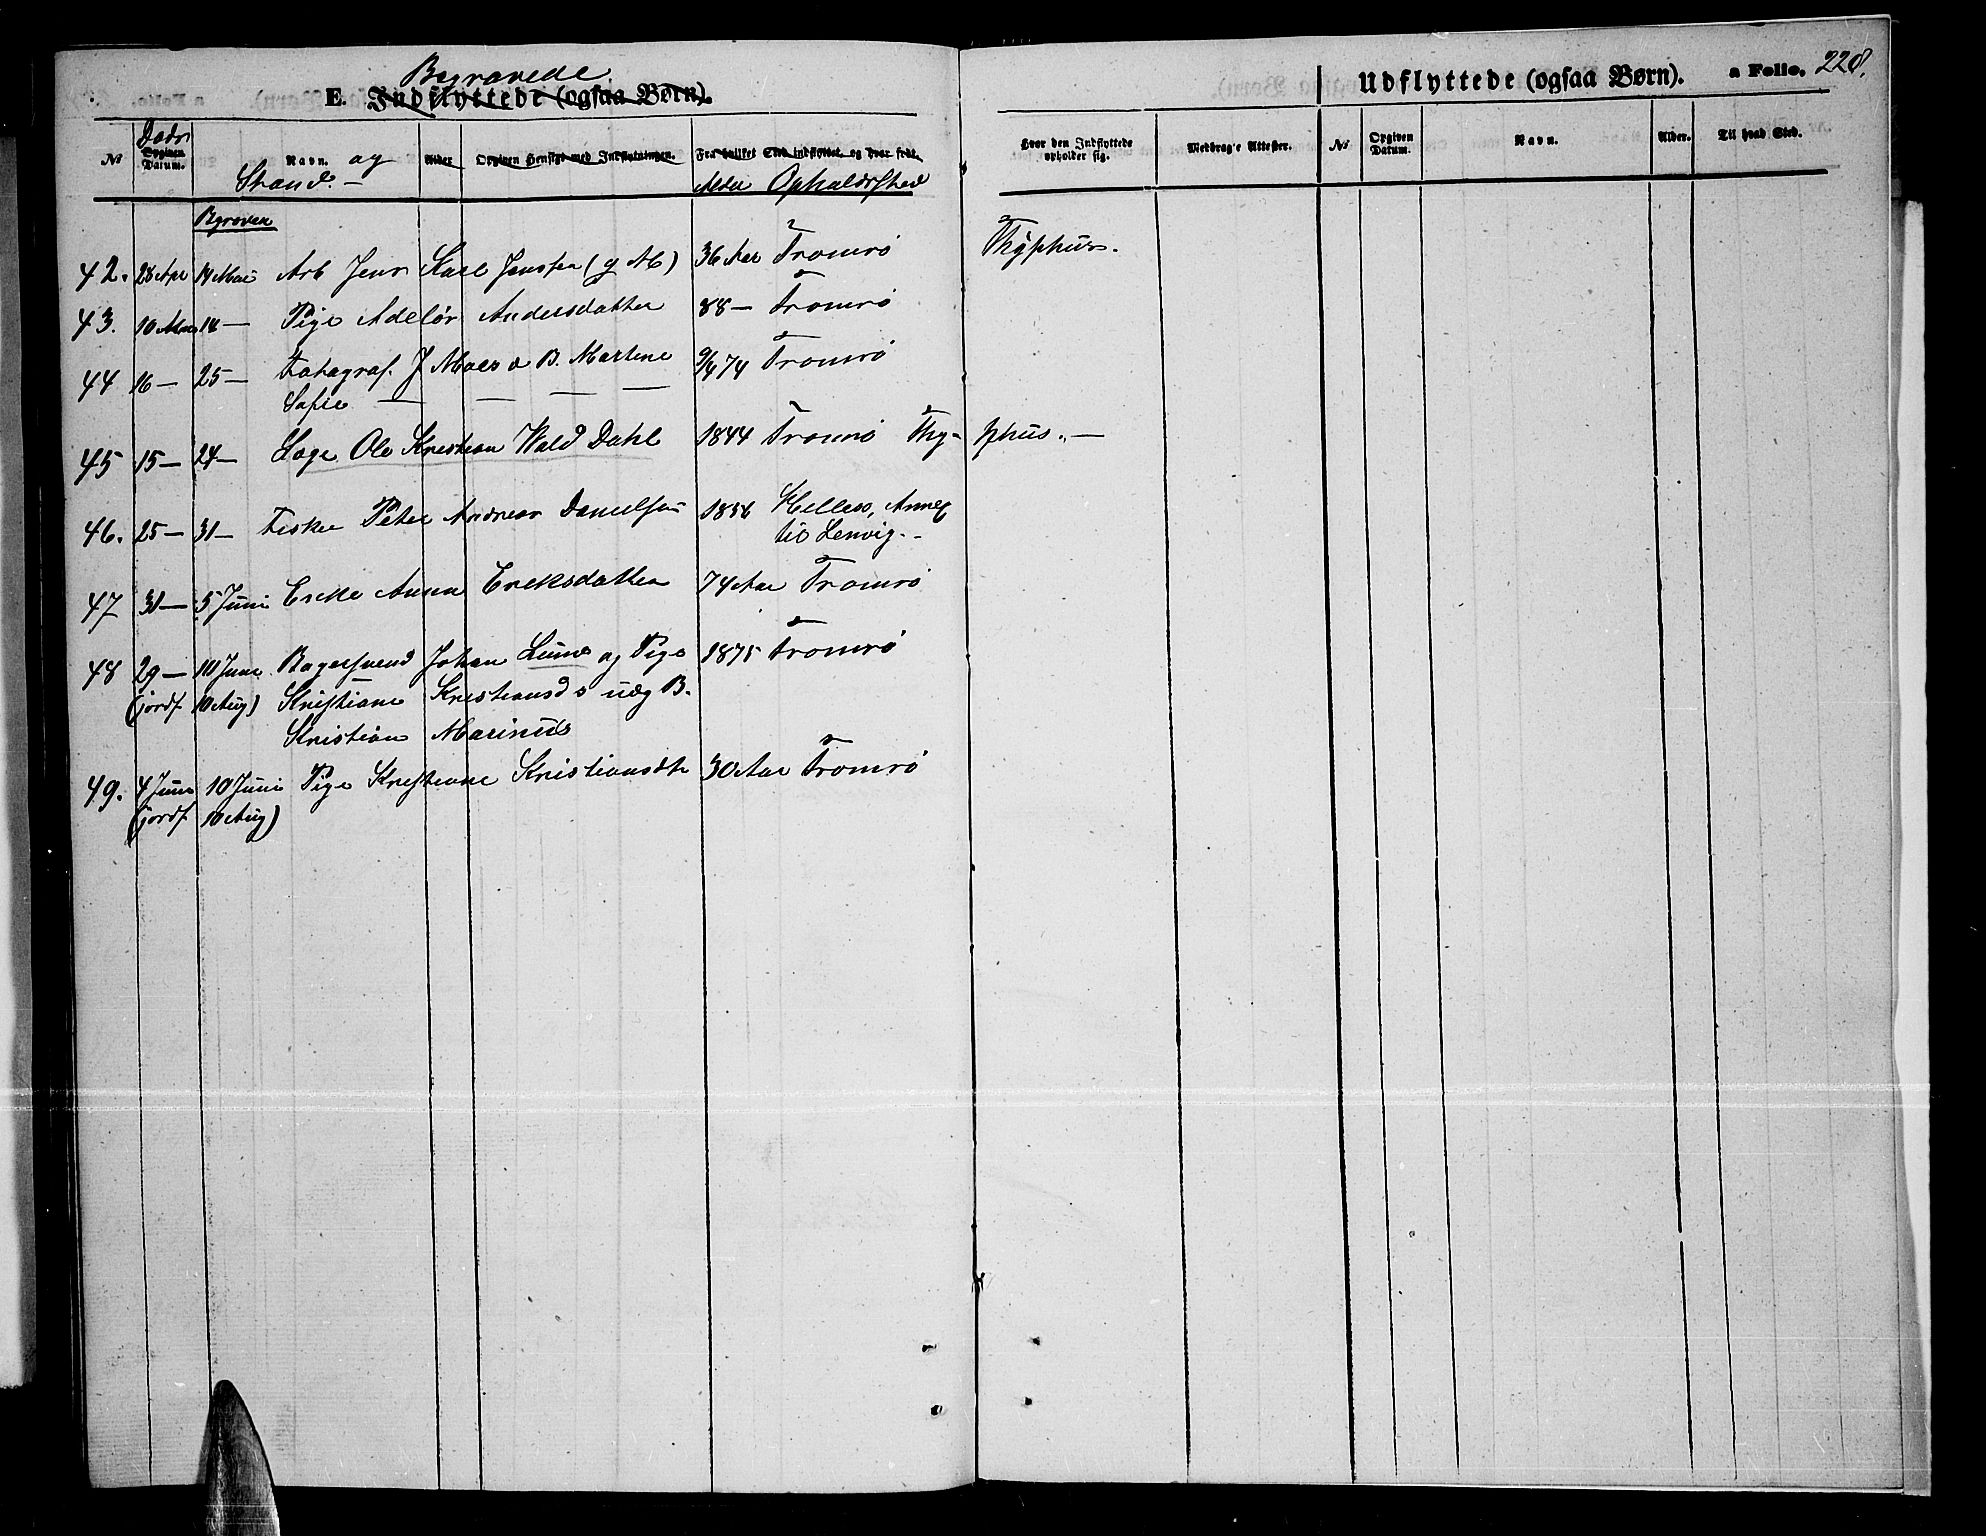 Begravede
E. Indflyttede (ogsaa Børn).
Udflyttede (ogsaa Børn). a Folio. 228.
Døds
№ Opgiven Datum. Navn. og Alder Opgiven Hensigt med Indflytningen. Fra hvilket Sted indflyttet, og hvor født.
Stand. — Alder Opholdssted
Hvor den Indflyttede opholder sig. Medbragte Attester. № Opgiven Datum. Navn. Alder. Til hvad Sted.
Begraven
42. 28 Apr 14 Mai Arb Jens Karl Jensen (g M) 36 Aar Tromsø Thyphus.
43. 10 Mai 18 — Pige Adelør Andersdatter 88 — Tromsø
44 16 — 25 — Fotograf. J Moes d B. Martine 9/4 74 Tromsø
Sofie — — — —
45 15 — 24 — Læge Ole Kristian Wald Dahl 1844 Tromsø Thyphus. —
46. 25 — 31 — Fisker Peter Andreas Danielsen 1856 Hellesø, Annex
til Lenvig. -
47 31 — 5 Juni Enke Anna Eriksdatter 74 Aar Tromsø
48 29 — 10 Juni Bagersvend Johan Lund og Pige 1875 Tromsø
(jordf. 10 Aug) Kristiane Kristiansds uæg B.
Kristian Marinus
49. 4 Juni 10 Juni Pige Kristiane Kristiansdtr 30 Aar Tromsø
(jordf. 10 Aug)